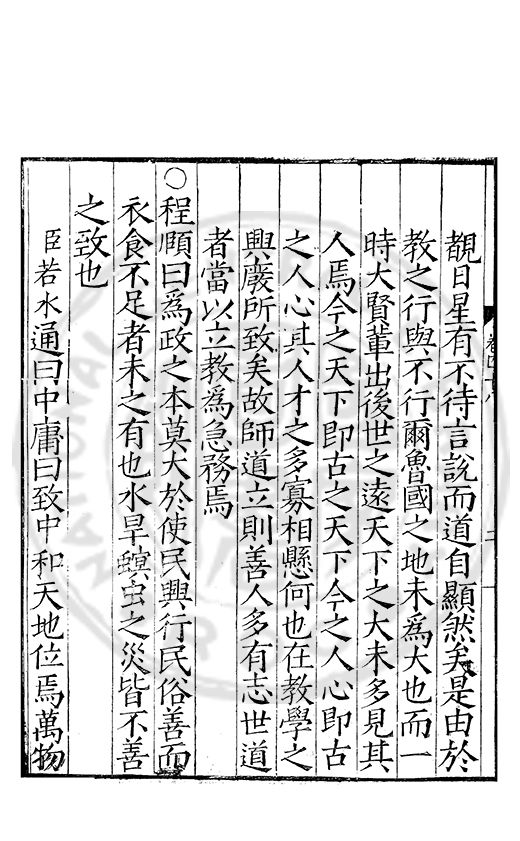 覩日星有不待言說而道自顯然矣是由於
教之行與不行爾魯國之地未為大也而一
時大賢輩出後世之遠天下之大未多見其
人焉今之天下即古之天下今之人心即古
之人心其人才之多寡相懸何也在教學之
興廢所致矣故師道立則善人多有志世道
者當以立教為急務焉
○程頤曰為政之本莫大於使民興行民俗善而
衣食不足者未之有也水旱螟虫之災皆不善
之致也
臣若水通曰中庸曰致中和天地位焉萬物